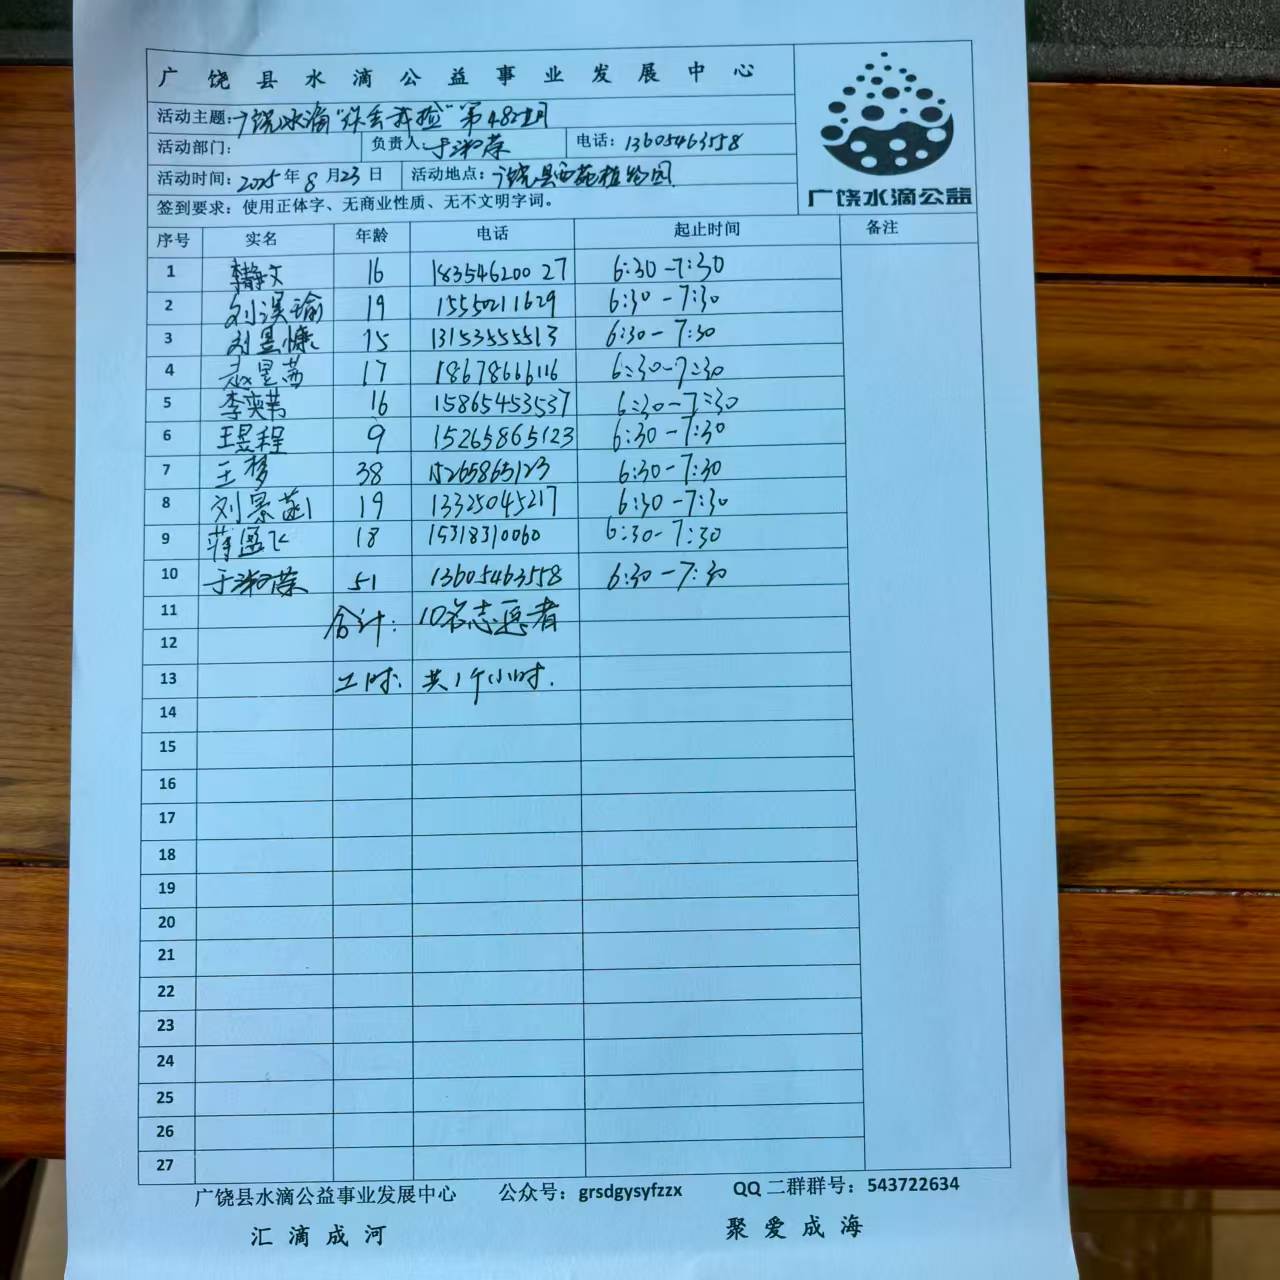 广饶县水滴公益事业发展中心
活动主题：广饶水滴“你丢我捡”第482期
活动部门： 负责人 于湘荣 电话：13605463558
活动时间：2025年8月23日 活动地点：广饶县西苑植物园
签到要求：使用正体字、无商业性质、无不文明字词。
广饶水滴公益
序号 实名 年龄 电话 起止时间 备注
1 李静文 16 18354620027 6:30-7:30
2 刘淏瑜 19 15550211629 6:30-7:30
3 刘昱慷 15 13153555513 6:30-7:30
4 赵星茜 17 18678666116 6:30-7:30
5 李奕菁 16 15865453537 6:30-7:30
6 王昱程 9 15265865123 6:30-7:30
7 王梦 38 15265865123 6:30-7:30
8 刘景菡 19 13325045217 6:30-7:30
9 蒋盈飞 18 15318310060 6:30-7:30
10 于湘荣 51 13605463558 6:30-7:30
11 合计：10名志愿者
12
13 工时：共1个小时.
14
15
16
17
18
19
20
21
22
23
24
25
26
27
广饶县水滴公益事业发展中心 公众号：grsdgysyfzzx QQ二群群号：543722634
汇滴成河 聚爱成海